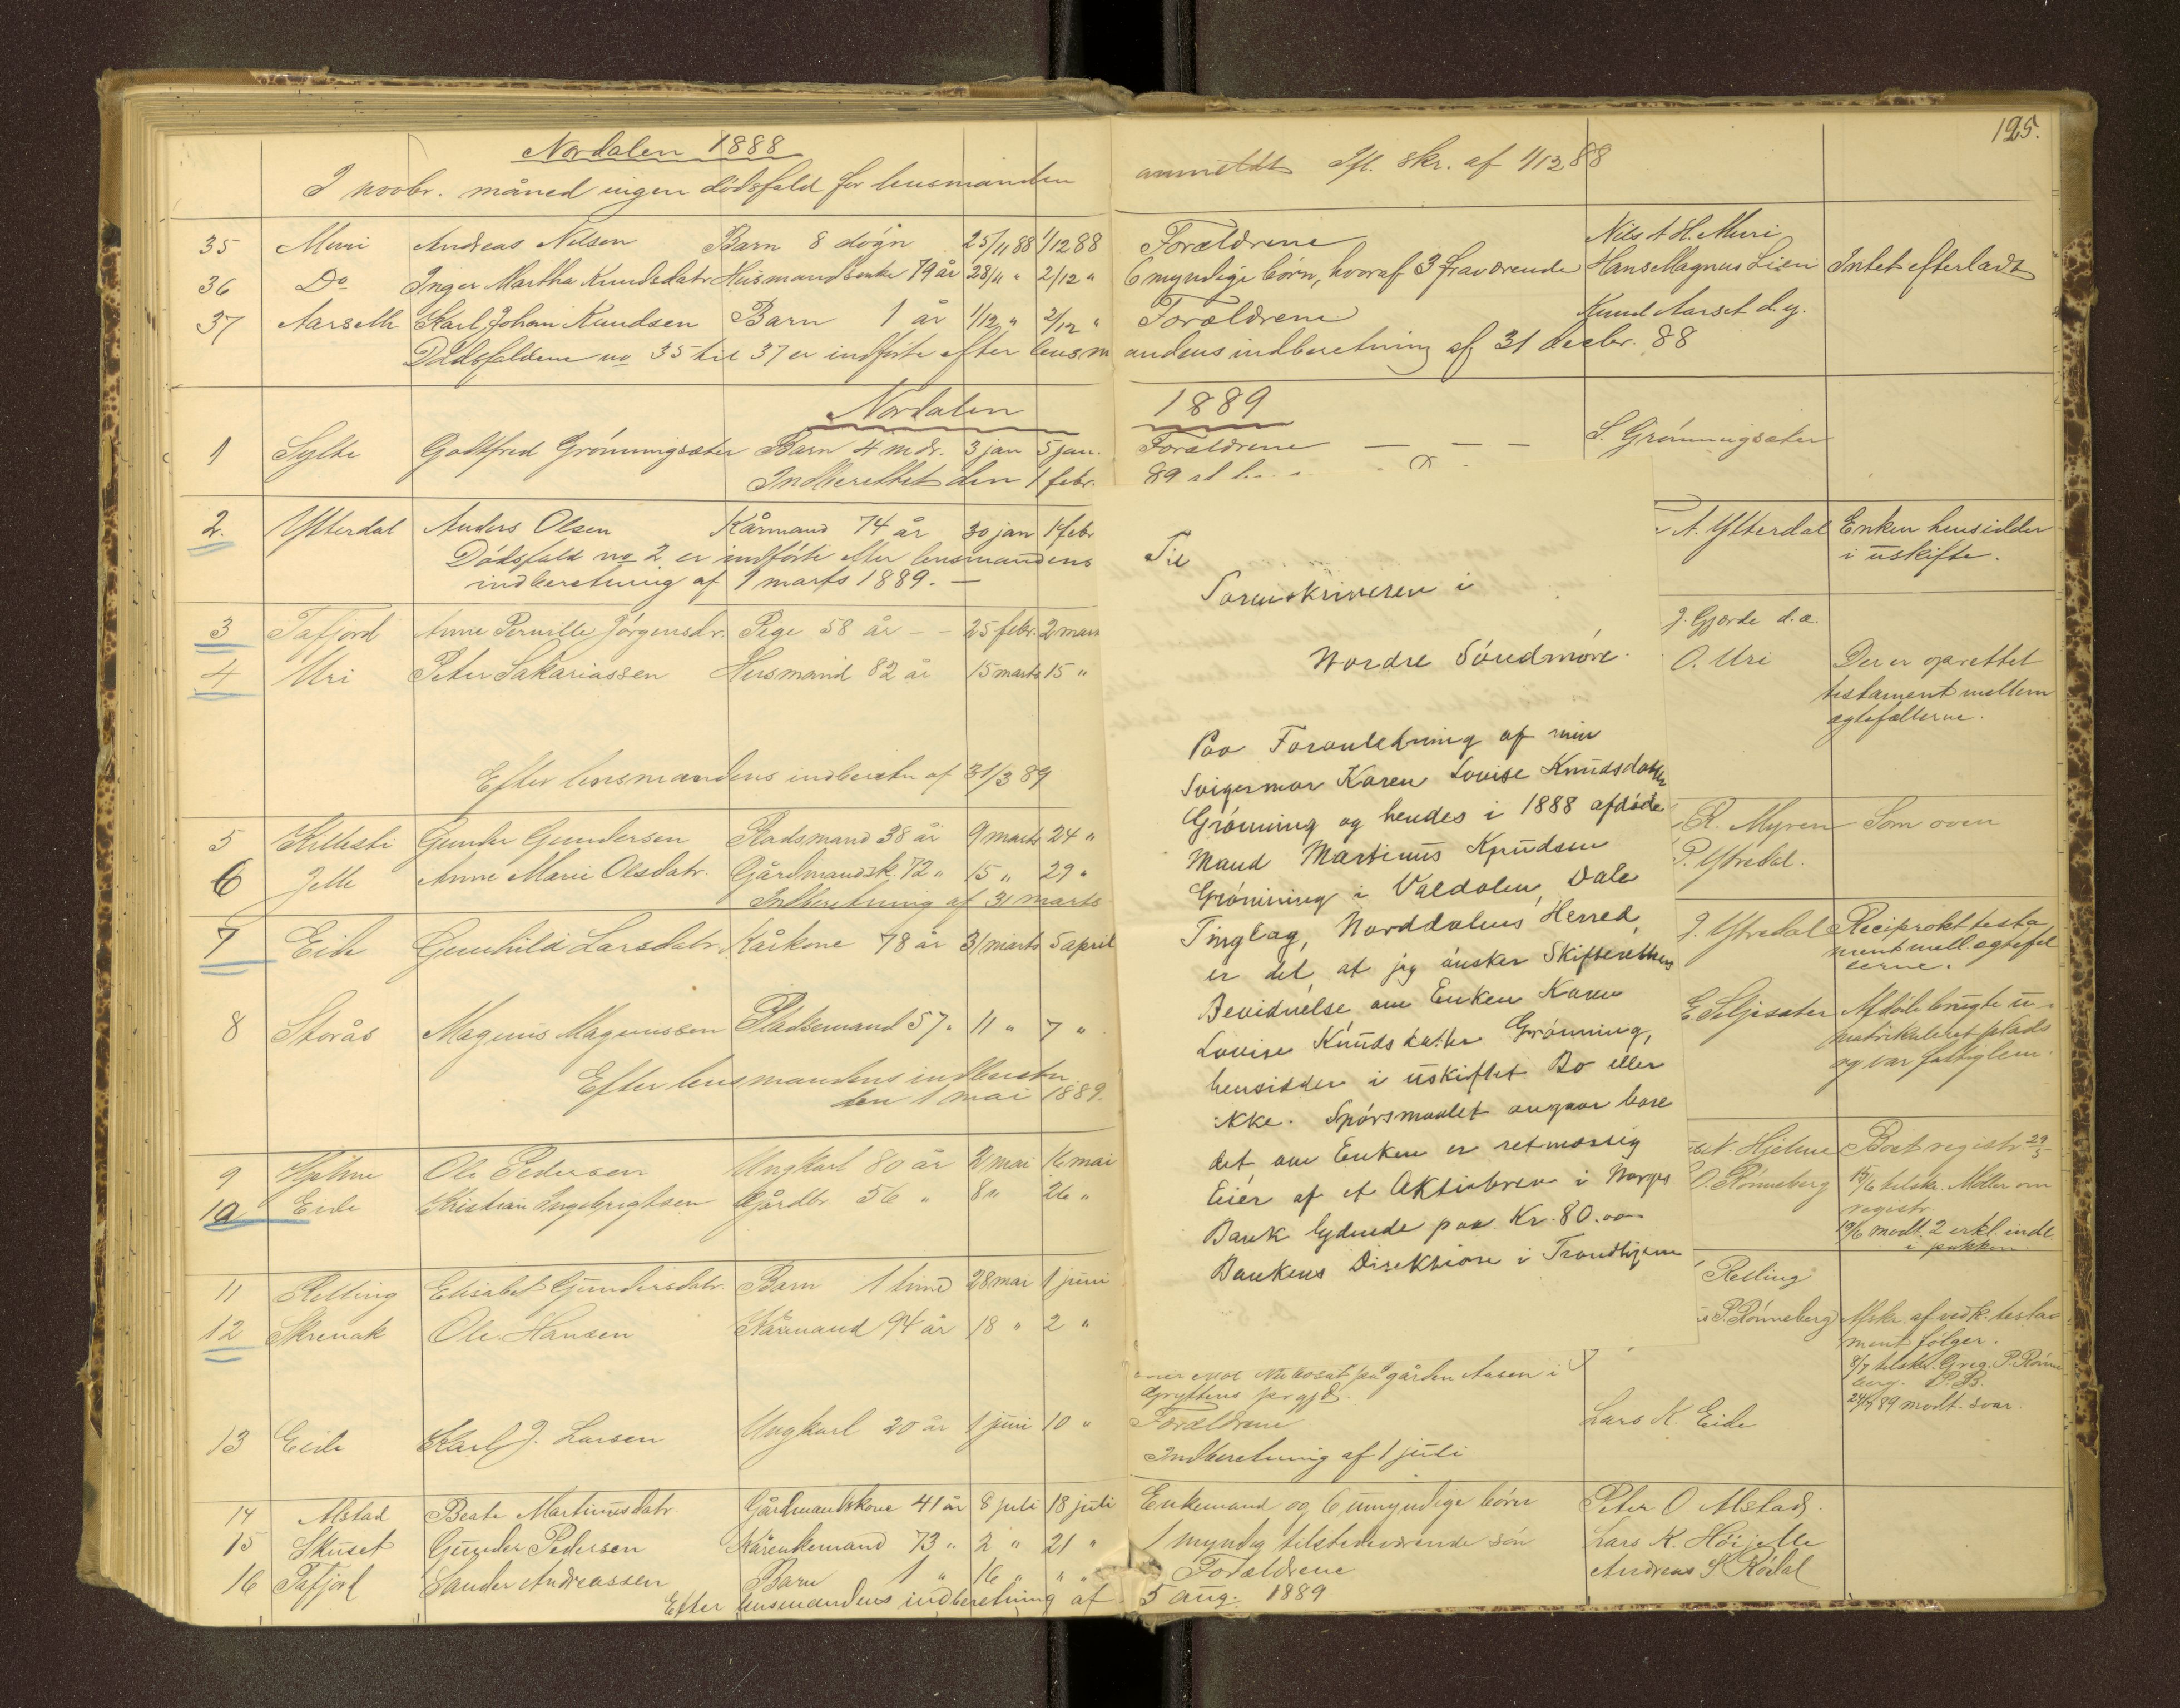 125.
Nordalen 1888
I novbr. måned ingen dödsfald for lensmanden anmeldt Ifl. skr. af 1/12 88
35 Muri Andreas Nilsen Barn 8 døgn 25/11 88 1/12 88 Forældrene Nils A H. Muri
36 Do Inger Martha Knudsdatr Husmandsenke 79 år 28/11 " 2/12 " 6 myndige børn, hvoraf 3 fraværende Hans Magnus Lien Intet efterladt
37 Aarseth Karl Johan Knudsen Barn 1 år 1/12 " 2/12 " Forældrene Knud Aarset d.y.
Dödsfaldene no 35 til 37 er indførte efter lensmandens indberetning af 31 decbr. 88
Nordalen 1889
1 Sylte Godtfred Grønningsæter Barn 4 mdr. 3 jan 5 jan. Forældrene — — — S. Grønningsæter
Indberettet den 1 febr. 89
2. Ytterdal Anders Olsen Kårmand 74 år 30 jan 1 febr A. Ytterdal Enken hensidder
i uskifte.
Dödsfald no 2 er indförte efter lensmandens
indberetning af 1 marts 1889. —
3 Tafjord Anne Pernille Jörgensdr. Pige 58 år - - 25 febr. 2 mars J. Gjørde d.æ.
4 Uri Peter Sakariassen Husmand 82 år 15 marts 15 " O. Uri Der er oprettet
testament mellem
ægtefællerne.
Efter lensmandens indberetn af 31/3 89
5 Killisti Gunder Gundersen Pladsmand 38 år 9 marts 24 " R. Myren Som oven
6 Jelle Anne Marie Olsdatr. Gårdmandsk. 72 " 15 " 29 " P. Ytredal.
Indberetning af 31 marts
7 Eide Gunhild Larsdatr. Kårkone 78 år 31 marts 5 april J. Ytredal Reciprokt testa
ment mell. ægtefæl
lerne.
8 Storås Magnus Magnussen Pladsemand 57 " 11 " 7 " E. Seljesæter Afdöde brugte u-
matrikuleret plads
og var fattiglem.
Efter lensmandens indberetn.
den 1 mai 1889.
9 Ole Pedersen Ungkarl 80 år 2 mai 16 mai N. Hjelme Boet registr 29/5
10 Eide Kristian Ingebrigtsen Gårdbr. 56 " 8 " 26 " O. Rønneberg 15/6 tilskr. Möller om
registr.
19/6 modt. 2 erkl. indl.
i pakken
11 Relling Elisabet Gundersdatr. Barn 1 time 28 mai 1 juni Relling
12 Skrenak Ole Hansen Kårmand 94 år 18 " 2 " P. Rønneberg Afskr. af vedk. testa
ment følger.
8/7 tilskr. Greg. P. Rönne
berg. D.B.
24/7 89 modt. svar.
på gården Aasen i
Gryttens prgjd.
13 Eide Karl J. Larsen Ungkarl 20 år 1 juni 10 " Forældrene Lars K. Eide
Indberetning af 1 juli
14 Alstad Beate Martinusdatr Gårdmandskone 41 år 8 juli 18 juli Enkemand og 6 umyndige børn Peter O Alstad.
15 Skuset Gunder Pedersen Kårenkemand 73 " 2 " 21 " 1 myndig tilstedeværende sön Lars K. Höijelle
16 Tafjord Sander Andreassen Barn 1 " 16 " " " Forældrene Andreas S Rödal
Efter lensmandens indberetning af 5 aug. 1889
Til
Sorenskriveren i
Nordre Söndmöre.
Paa Foranledning af min
Svigermor Karen Lovise Knudsdatter
Grønning og hendes i 1888 afdöde
Mand Martinus Knudsen
Grønning i Valdalen, Dale
Tinglag, Norddalens Herred,
er det, at jeg önsker Skifterettens
Bevidnelse om Enken Karen
Lovise Knudsdatter Grønning,
hensidder i uskiftet Bo eller
ikke. Spörsmaalet angaar bare
det om Enken er retmæssig
Eier af et Aktiebrev i Norges
Bank lydende paa Kr. 80.00
Bankens Direktion i Trondhjem